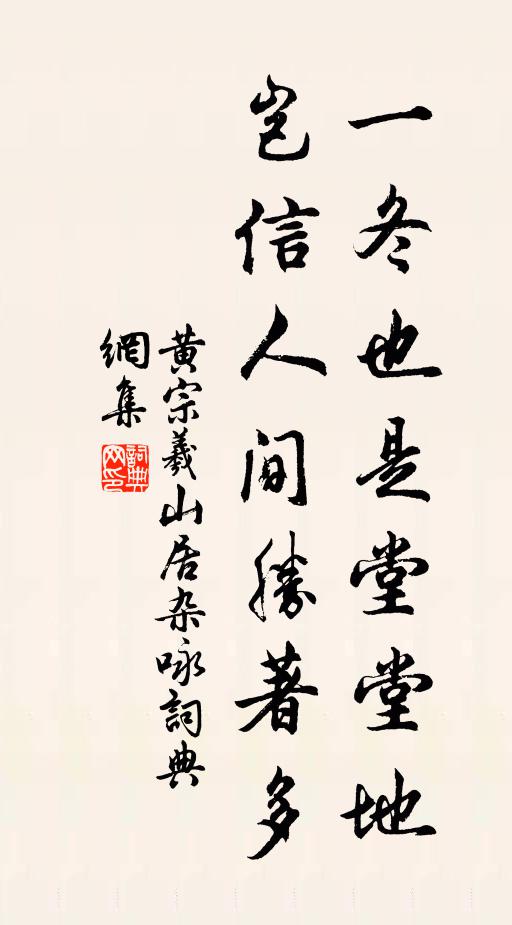 一冬也是堂堂地
岂信人间勝著多
黄宗羲山居杂咏詞典
網集
詞典網印